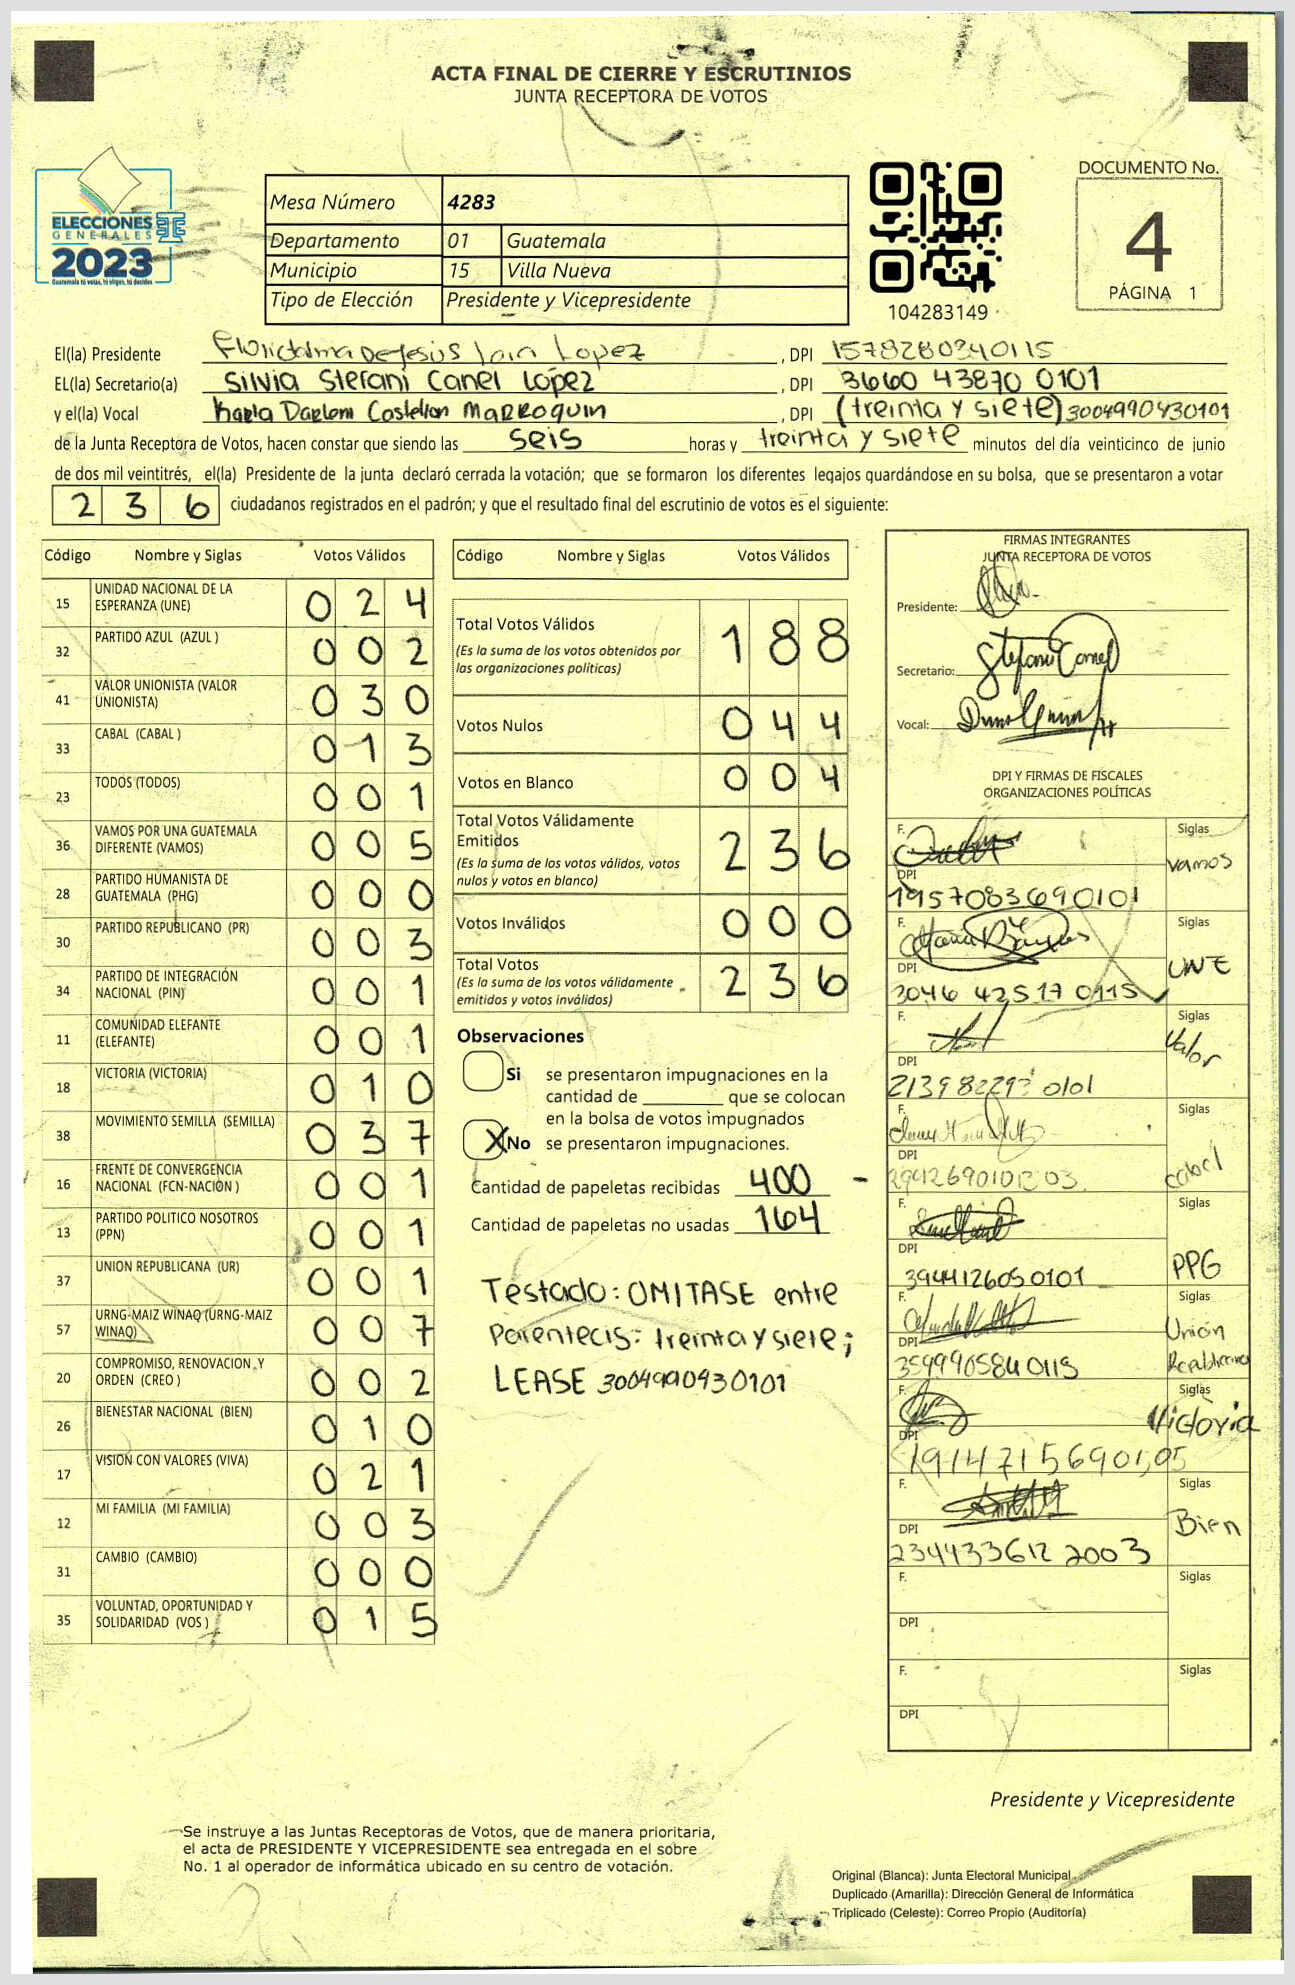 ACTA FINAL DE CIERRE Y ESCRUTINIOS
JUNTA RECEPTORA DE VOTOS
ELECCIONES
GENERALES
2023
Guatemala tú votas, tú eliges, tú decides
Mesa Número 4283
Departamento 01 Guatemala
Municipio 15 Villa Nueva
Tipo de Elección Presidente y Vicepresidente
104283149
DOCUMENTO No.
4
PÁGINA 1
El(la) Presidente Lopez , DPI 1578280340115
EL(la) Secretario(a) Silvia Stefani Canel López , DPI 3660 43870 0101
y el(la) Vocal Karla Darleni Castellon MARROQUIN , DPI (treinta y siete) 3004990430101
de la Junta Receptora de Votos, hacen constar que siendo las seis horas y treinta y siete minutos del día veinticinco de junio
de dos mil veintitrés, el(la) Presidente de la junta declaró cerrada la votación; que se formaron los diferentes legajos guardándose en su bolsa, que se presentaron a votar
236 ciudadanos registrados en el padrón; y que el resultado final del escrutinio de votos es el siguiente:
Código Nombre y Siglas Votos Válidos
15 UNIDAD NACIONAL DE LA ESPERANZA (UNE) 024
32 PARTIDO AZUL (AZUL ) 002
41 VALOR UNIONISTA (VALOR UNIONISTA) 030
33 CABAL (CABAL ) 013
23 TODOS (TODOS) 001
36 VAMOS POR UNA GUATEMALA DIFERENTE (VAMOS) 005
28 PARTIDO HUMANISTA DE GUATEMALA (PHG) 000
30 PARTIDO REPUBLICANO (PR) 003
34 PARTIDO DE INTEGRACIÓN NACIONAL (PIN) 001
11 COMUNIDAD ELEFANTE (ELEFANTE) 001
18 VICTORIA (VICTORIA) 010
38 MOVIMIENTO SEMILLA (SEMILLA) 037
16 FRENTE DE CONVERGENCIA NACIONAL (FCN-NACIÓN ) 001
13 PARTIDO POLITICO NOSOTROS (PPN) 001
37 UNION REPUBLICANA (UR) 001
57 URNG-MAIZ WINAQ (URNG-MAIZ WINAQ) 007
20 COMPROMISO, RENOVACION Y ORDEN (CREO ) 002
26 BIENESTAR NACIONAL (BIEN) 010
17 VISION CON VALORES (VIVA) 021
12 MI FAMILIA (MI FAMILIA) 003
31 CAMBIO (CAMBIO) 000
35 VOLUNTAD, OPORTUNIDAD Y SOLIDARIDAD (VOS ) 015
Código Nombre y Siglas Votos Válidos
Total Votos Válidos 188
(Es la suma de los votos obtenidos por
las organizaciones políticas)
Votos Nulos 044
Votos en Blanco 004
Total Votos Válidamente
Emitidos 236
(Es la suma de los votos válidos, votos
nulos y votos en blanco)
Votos Inválidos 000
Total Votos 236
(Es la suma de los votos válidamente
emitidos y votos inválidos)
Observaciones
Si se presentaron impugnaciones en la
cantidad de ________ que se colocan
en la bolsa de votos impugnados
X No se presentaron impugnaciones.
Cantidad de papeletas recibidas 400
Cantidad de papeletas no usadas 164
Testado: OMITASE entre
Parentecis: treinta y siete;
LEASE 3004990430101
FIRMAS INTEGRANTES
JUNTA RECEPTORA DE VOTOS
Presidente:
Secretario: Stefani Canel
Vocal:
DPI Y FIRMAS DE FISCALES
ORGANIZACIONES POLÍTICAS
F. Siglas
vamos
DPI
1957083690101
F. Siglas
UNE
DPI
3046 42517 0115
F. Siglas
Valor
DPI
0101
F. Siglas
cabal
DPI
F. Siglas
PPG
DPI
3944126050101
F. Siglas
Unión
Republicana
DPI
3599905840115
F. Siglas
Victoria
DPI
1914715690105
F. Siglas
Bien
DPI
234433612 2003
F. Siglas
DPI
F. Siglas
DPI
Presidente y Vicepresidente
Se instruye a las Juntas Receptoras de Votos, que de manera prioritaria,
el acta de PRESIDENTE Y VICEPRESIDENTE sea entregada en el sobre
No. 1 al operador de informática ubicado en su centro de votación.
Original (Blanca): Junta Electoral Municipal
Duplicado (Amarilla): Dirección General de Informática
Triplicado (Celeste): Correo Propio (Auditoría)